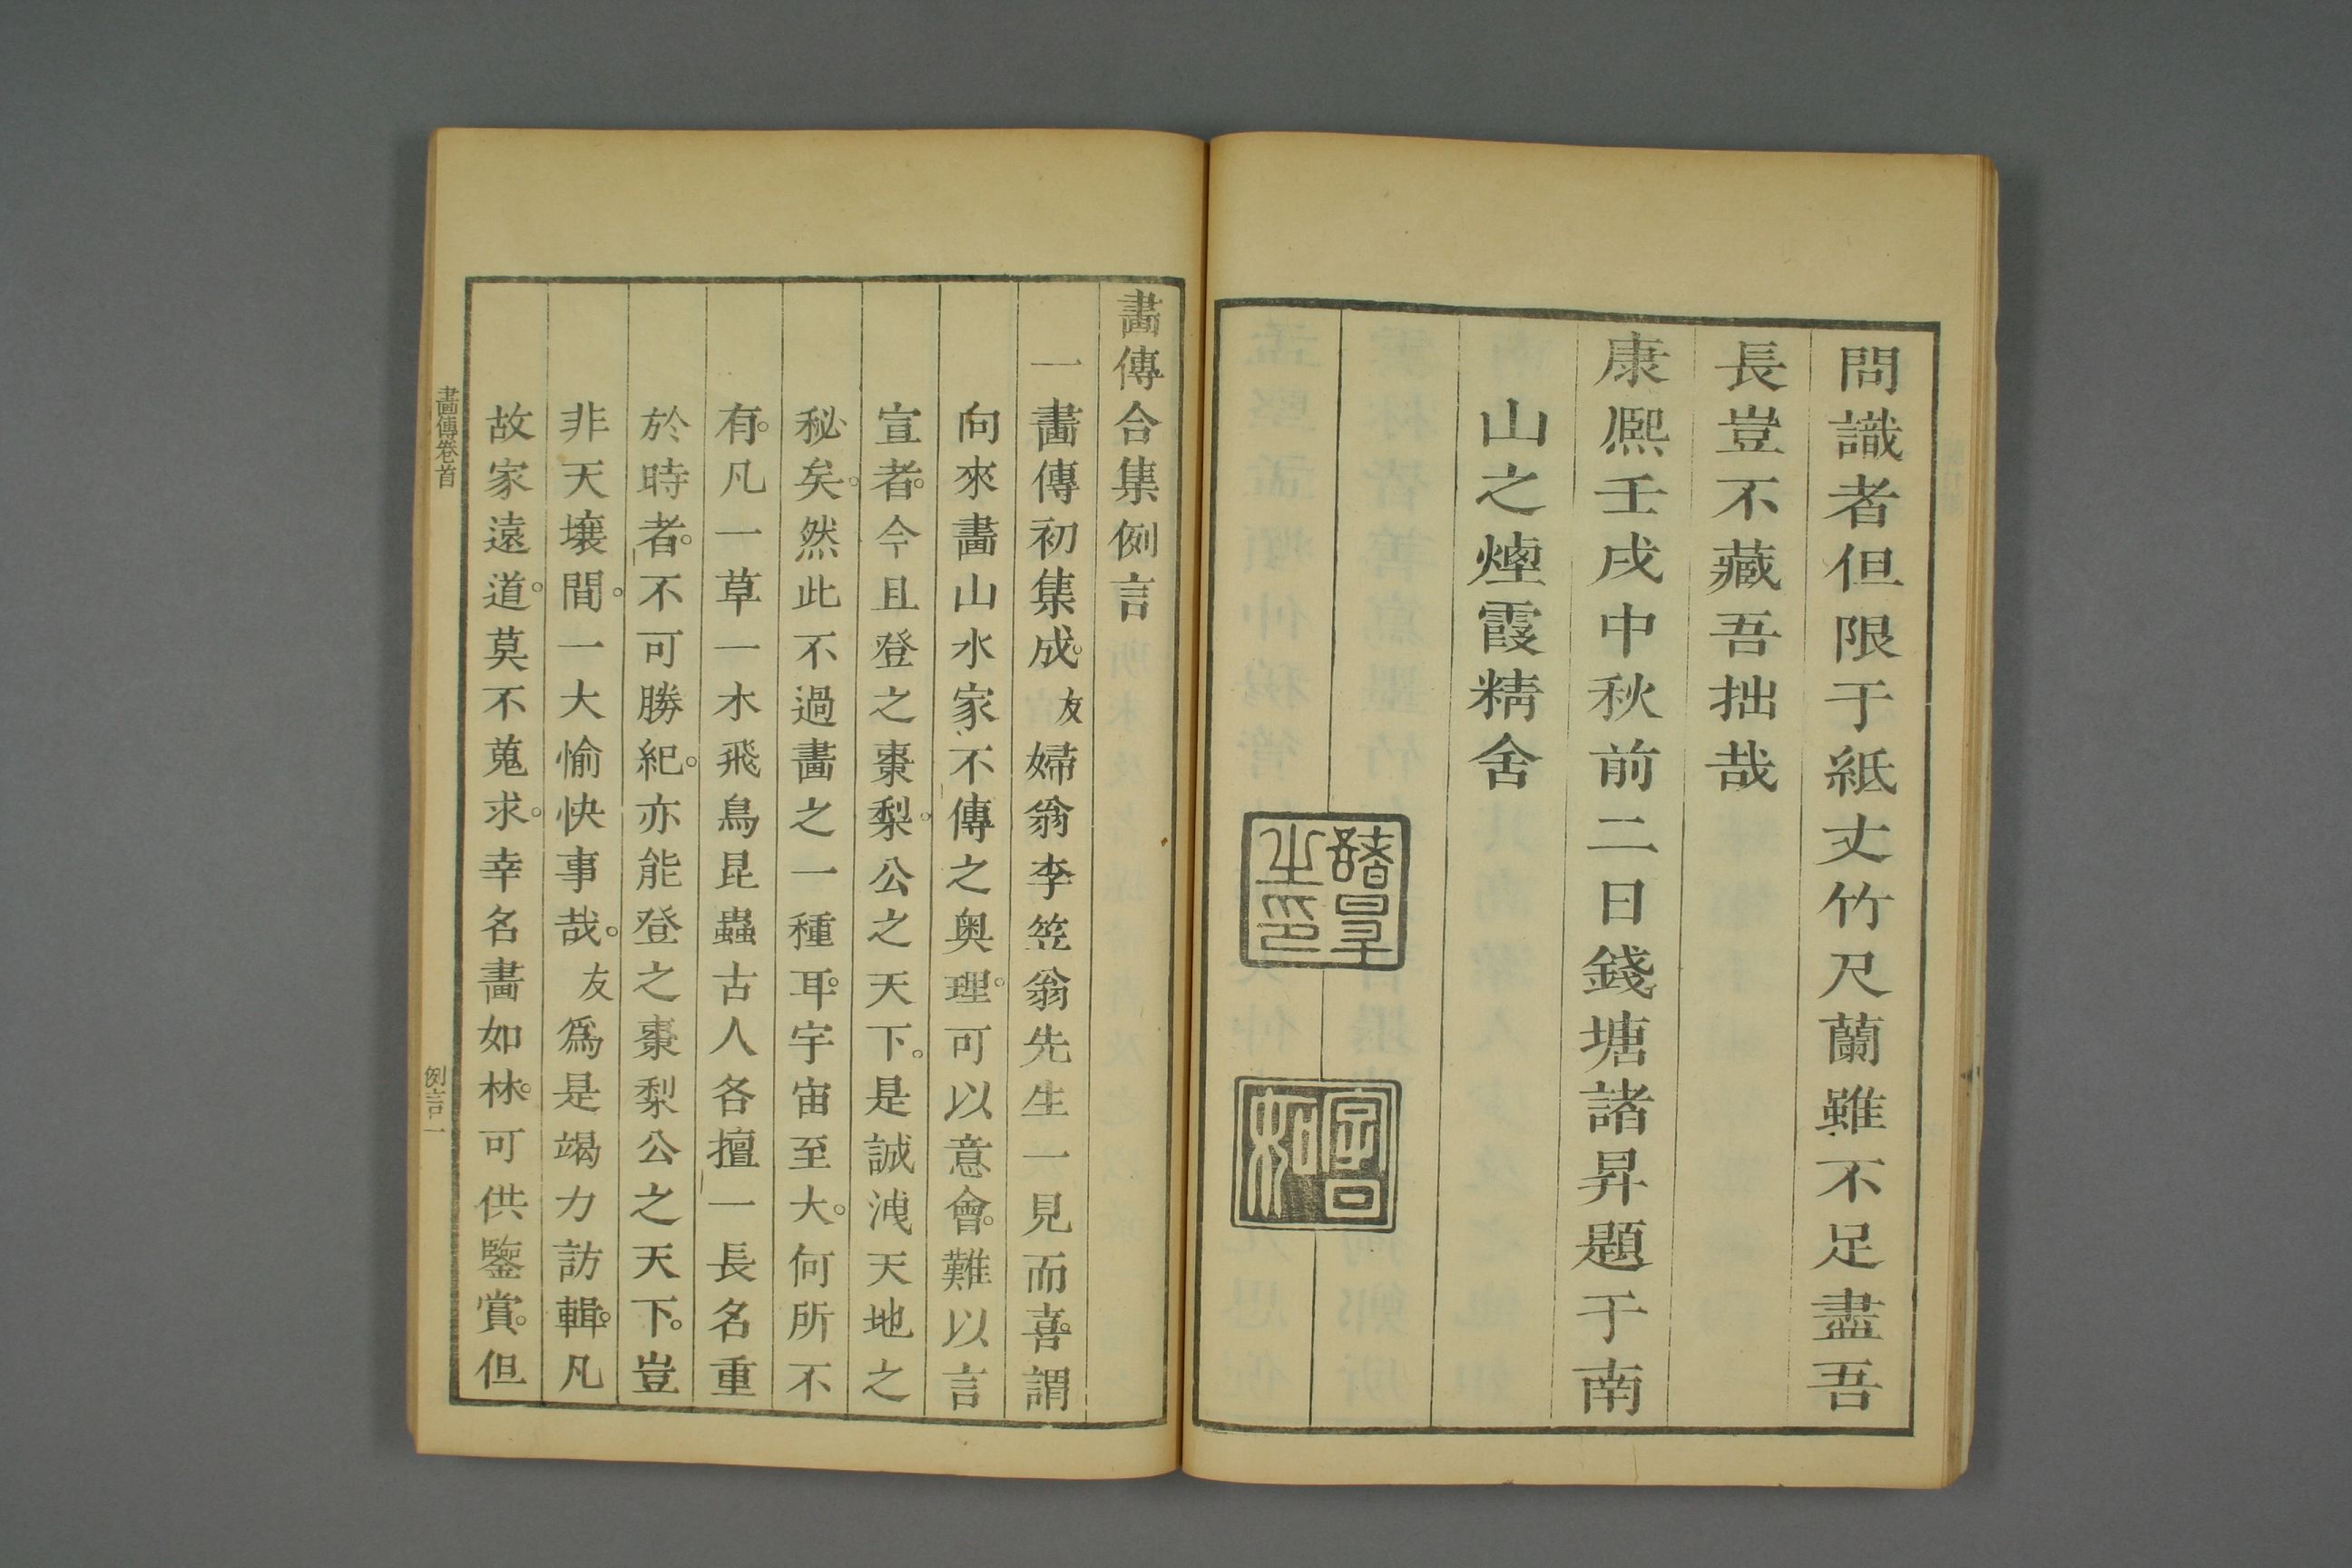 問識者但限于紙丈竹尺蘭雖不足盡吾
長豈不藏吾拙哉
康熈壬戌中秋前二日錢塘諸昇題于南
山之煙霞精舍
諸昇之印
字曰如
畫傳合集例言
一畫傳初集成。友婦翁李笠翁先生一見而喜。謂
向來畫山水家不傳之奥理。可以意會。難以言
宣者。今且登之棗梨。公之天下。是誠洩天地之
秘矣。然此不過畫之一種耳。宇宙至大。何所不
有。凡一草一木飛鳥昆蟲古人各擅一長名重
於時者。不可勝紀。亦能登之棗梨公之天下。豈
非天壤間。一大愉快事哉。友爲是竭力訪輯。凡
故家遠道。莫不蒐求。幸名畫如林。可供鑒賞。但
畫傳卷首
例言一